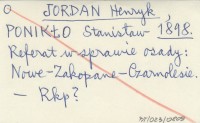 JORDAN Henryk
PONIKŁO Stanisław 1898.
Referat w sprawie osady:
Nowe-Zakopane-Czarnolesie.
— Rkp?